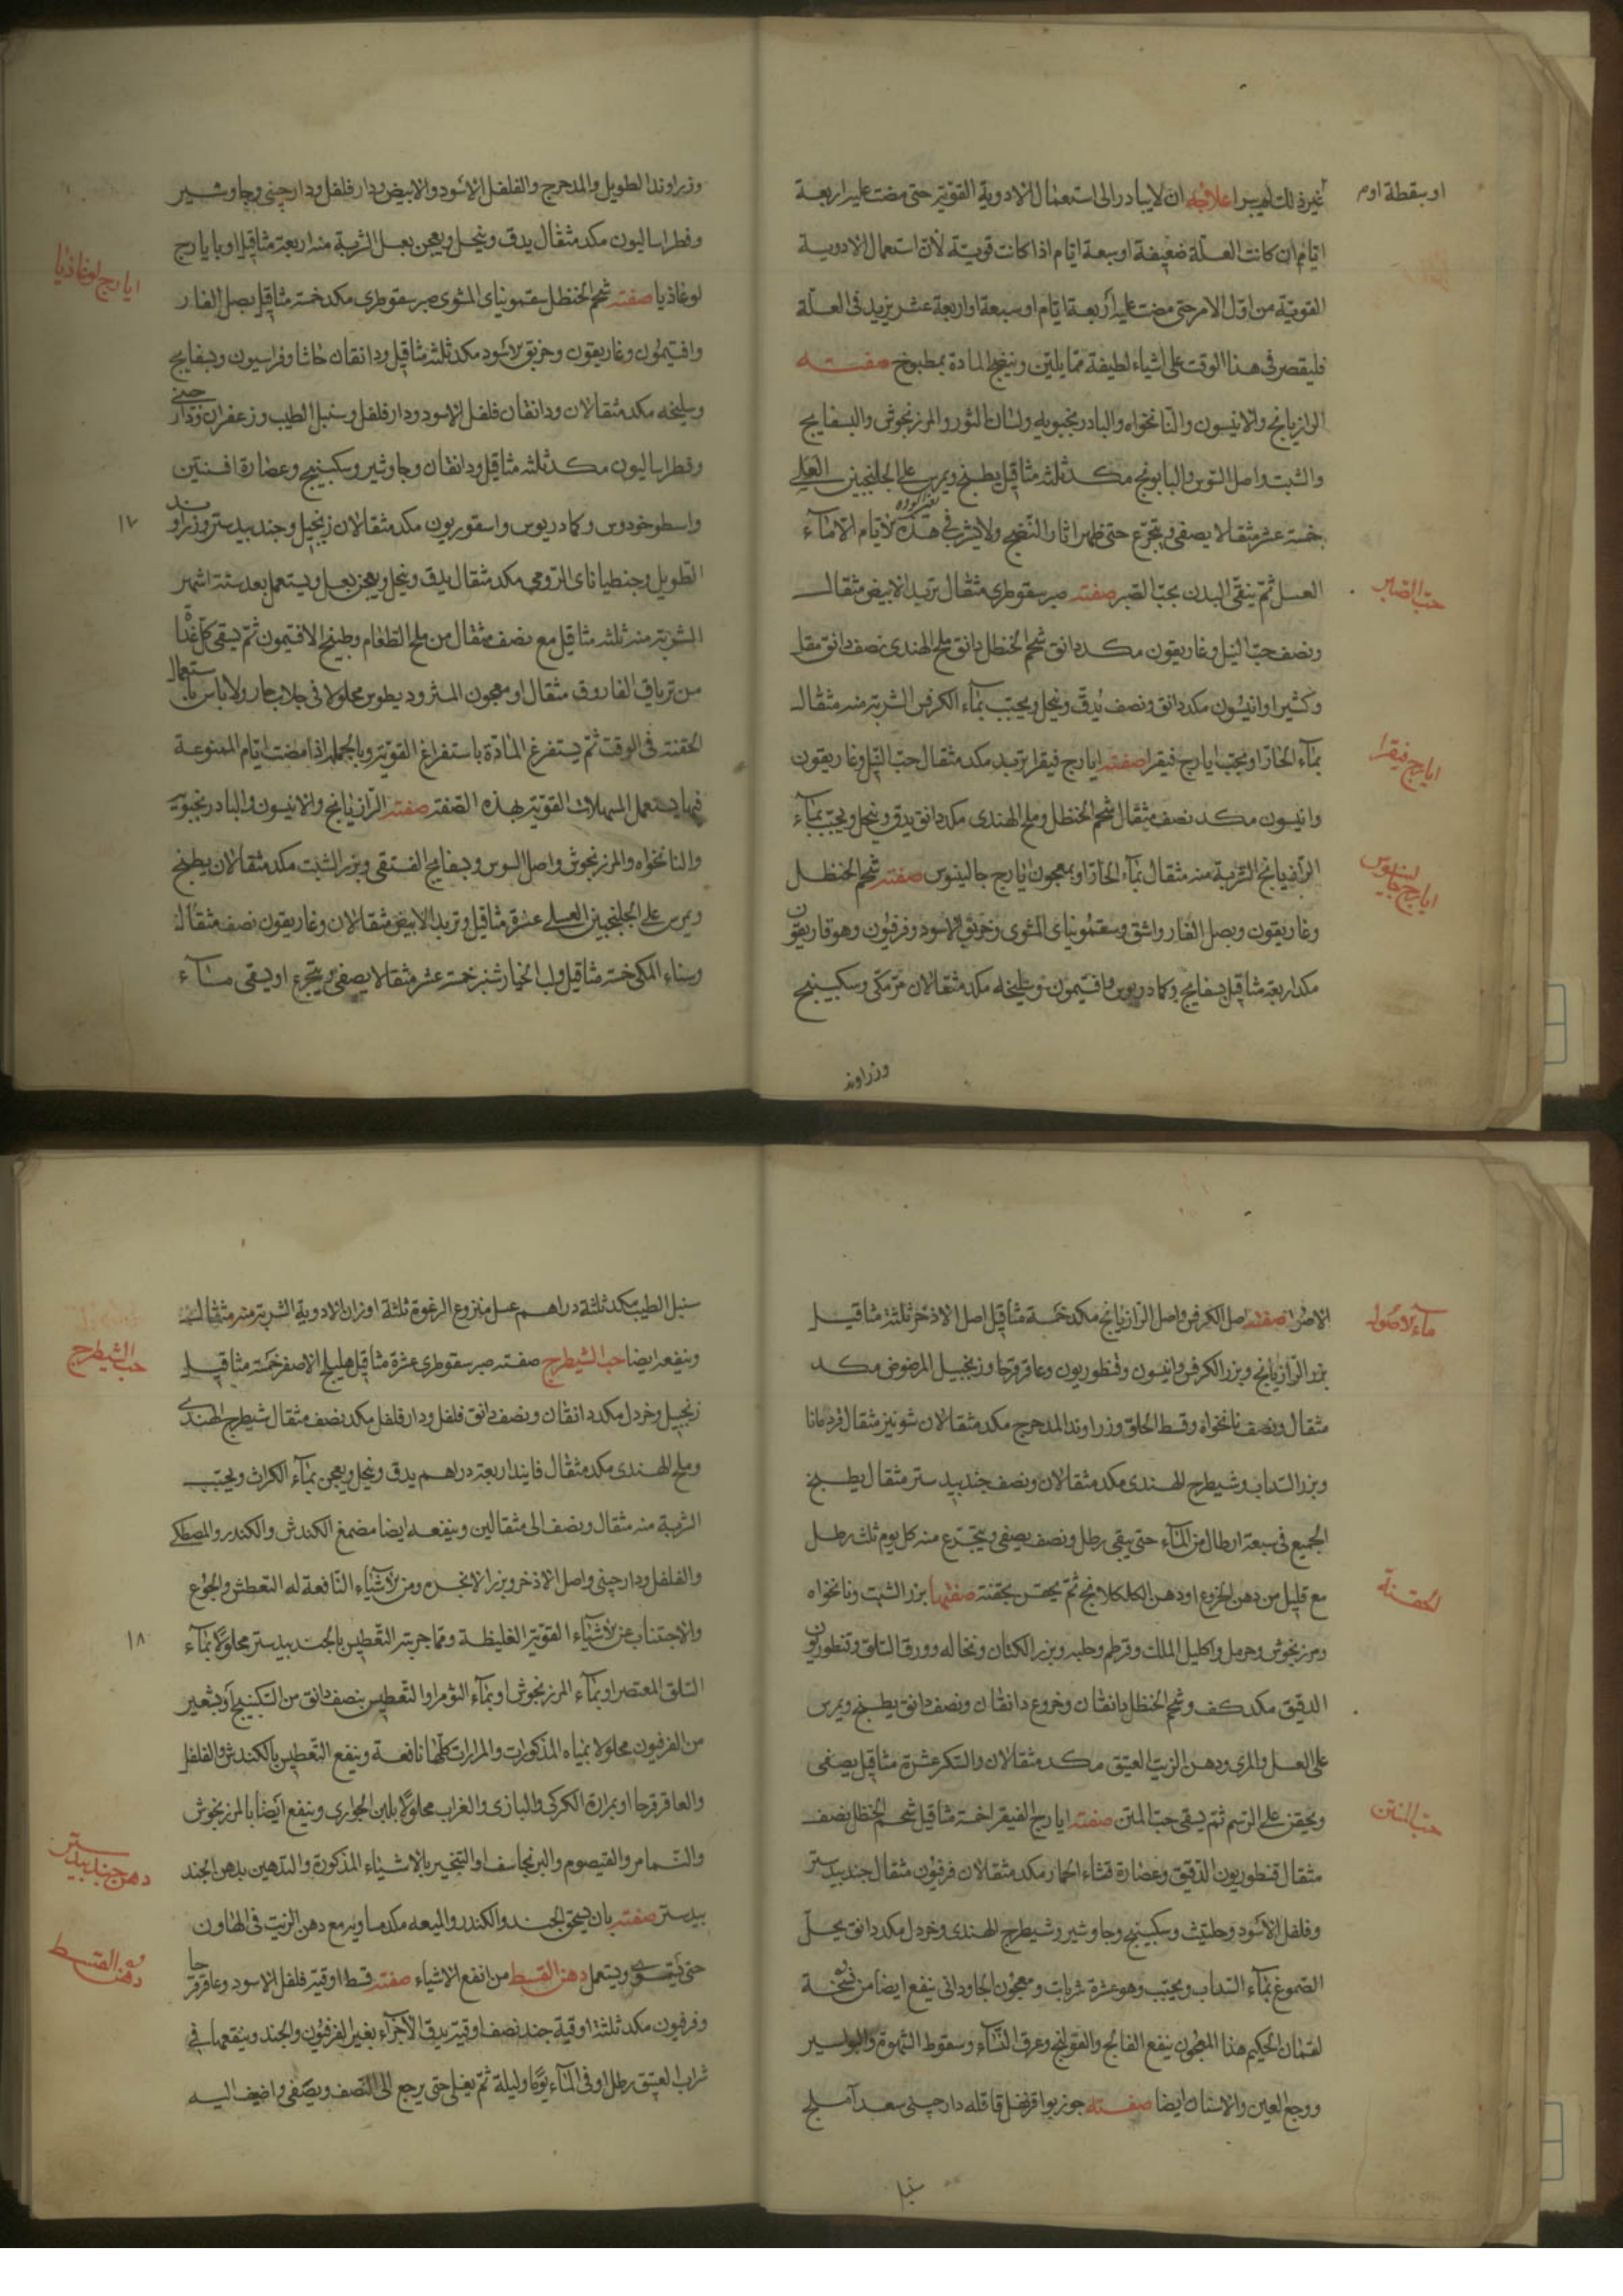 او بسقطة اوم
غير ذلك علاجه ان لا يبادر الى استعمال الادوية القوية حتى مضت عليه اربعة
ايام ان كانت العلة ضعيفة او سبعة ايام اذا كانت قوية لان استعمال الادوية
القوية من اول الامر حتى مضت عليه اربعة ايام او سبعة او اربعة عشر يزيد فى العلة
فليقصر فى هذا الوقت على اشياء لطيفة مما يلين وينضج المادة بمطبوخ صفته
الرازيانج والانيسون والنانخواه والبادرنجبويه ولسان الثور والمرزنجوش والبسفايج
والشبت واصل السوس والبابونج مكد ثلثه مثاقيل يطبخ ويمرس على الجلنجبين العسلى
خمسة عشر مثقالا يصفى ويتجرع حتى ظهر اثار النضج ولا يشرب فى هذه الايام الا ماء
العسل ثم ينقى البدن بحب الصبر صفته صبر سقوطرى مثقال تربد الابيض مثقال
حب الصبر
ونصف حب النيل وغاريقون مكد دانق شحم الحنظل دانق ملح الهندى نصف دانق مقل
وكثيرا وانيسون مكد دانق ونصف يدق وينخل ويحبب بماء الكرفس الشربة منه مثقال
بماء الحار او بحب ايارج فيقرا صفته ايارج فيقرا تربد مكد مثقال حب النيل وغاريقون
ايارج فيقرا
وانيسون مكد نصف مثقال شحم الحنظل وملح الهندى مكد دانق يدق وينخل ويحبب بماء
الرازيانج الشربة منه مثقال بماء الحار او بمعجون ايارج جالينوس صفته شحم الحنظل
ايارج جالينوس
وغاريقون وبصل الفار واشق وسقمونياى المشوى وخربق الاسود وفرفيون وهوفاريقون
مكد اربعة مثاقيل بسفايج وكمادريوس وافتيمون وسليخه مكد مثقالان مر مكى وسكبينج
وزراوند
وزراوند الطويل والمدحرج والفلفل الاسود والابيض ودارفلفل ودارچينى وجاوشير
وفطراساليون مكد مثقال يدق وينخل ويعجن بعسل الشربة منه اربعة مثاقيل او بايارج
لوغاذيا صفته شحم الحنظل سقمونياى المشوى صبر سقوطرى مكد خمسة مثاقيل بصل الفار
ايارج لوغاذيا
وافتيمون وغاريقون وخربق الاسود مكد ثلثه مثاقيل ودانقان حاشا وفراسيون وبسفايج
وسليخه مكد مثقالان ودانقان فلفل الاسود ودارفلفل وسنبل الطيب وزعفران ودارچينى
وفطراساليون مكد ثلثه مثاقيل ودانقان وجاوشير وسكبينج وعصارة افسنتين
واسطوخودوس وكمادريوس واسقوريون مكد مثقالان زنجبيل وجندبيدستر وزراوند
۱۷
الطويل وجنطياناى الرومى مكد مثقال يدق وينخل ويعجن بعسل ويستعمل بعد ستة اشهر
الشربة منه ثلثه مثاقيل مع نصف مثقال من ملح الطعام وطبيخ الافتيمون ثم يسقى كل غداة
من ترياق الفاروق مثقال او معجون المثروديطوس محلولا فى جلاب حار ولا باس باستعمال
الحقنة فى الوقت ثم يستفرغ المادة باستفراغ القوية وبالجملة اذا مضت ايام الممنوعة
فيها يستعمل المسهلات القوية بهذه الصفة صفته الرازيانج والانيسون والبادرنجبويه
والنانخواه والمرزنجوش واصل السوس وبسفايج الفستقى وبزر الشبت مكد مثقالان يطبخ
ويمرس على الجلنجبين العسلى عشرة مثاقيل وتربد الابيض مثقالان وغاريقون نصف مثقال
وسناء المكى خمسة مثاقيل ولب الخيارشنبر خمسة عشر مثقالا يصفى ويتجرع او يسقى ماء
الاصول صفته اصل الكرفس واصل الرازيانج مكد خمسة مثاقيل اصل الاذخر ثلثة مثاقيل
ماء الاصول
بزر الرازيانج وبزر الكرفس وانيسون وقنطوريون وعاقرقرحا وزنجبيل المرضوض مكد
مثقال ونصف نانخواه وقسط الحلو وزراوند المدحرج مكد مثقالان شونيز مثقال قردمانا
وبزر السداب وشيطرج الهندى مكد مثقالان ونصف جندبيدستر مثقال يطبخ
الجميع فى سبعة ارطال من الماء حتى يبقى رطل ونصف يصفى ويتجرع منه كل يوم ثلث رطل
مع قليل من دهن الخروع او دهن الكلكلانج ثم يحقن بحقنة صفتها بزر الشبت ونانخواه
الحقنة
ومرزنجوش وحرمل واكليل الملك وقرطم وحلبه وبزر الكتان ونخاله وورق السلق وقنطوريون
الدقيق مكد كف وشحم الحنظل دانقان وخروع دانقان ونصف دانق يطبخ ويمرس
على العسل والمرى ودهن الزيت العتيق مكد مثقالان والسكر عشرة مثاقيل يصفى
ويحقن على الرسم ثم يسقى حب المنتن صفته ايارج الفيقرا خمسة مثاقيل شحم الحنظل نصف
حب المنتن
مثقال قنطوريون الدقيق وعصارة قثاء الحمار مكد مثقالان فرفيون مثقال جندبيدستر
وفلفل الاسود وحلتيت وسكبينج وجاوشير وشيطرج الهندى وخردل مكد دانق يحل
الصموغ بماء السداب ويحبب وهو عشرة شربات ومعجون الجاودانى ينفع ايضا من نسخة
لقمان الحكيم هذا المعجون ينفع الفالج والقولنج وعرق النساء وسقوط الشهوة والبواسير
ووجع العين والاسنان ايضا صفته جوزبوا قرنفل قاقله دارچينى سعد آملج
سنبل
سنبل الطيب مكد ثلثة دراهم عسل منزوع الرغوة ثلثة اوزان الادوية الشربة منه مثقال
وينفعه ايضا حب الشيطرج صفته صبر سقوطرى عشرة مثاقيل هليلج الاصفر خمسة مثاقيل
حب الشيطرج
زنجبيل وخردل مكد دانقان ونصف دانق فلفل ودارفلفل مكد نصف مثقال شيطرج الهندى
وملح الهندى مكد مثقال فانيد اربعة دراهم يدق وينخل ويعجن بماء الكراث ويحبب
الشربة منه مثقال ونصف الى مثقالين وينفعه ايضا مضغ الكندش والكندر والمصطكى
والفلفل ودارچينى واصل الاذخر وبزر الانجره ومن الاشياء النافعة له التعطش والجوع
والاجتناب عن الاشياء القوية الغليظة ومما جربته التعطيس بالجندبيدستر محلولا بماء
۱۸
السلق المعتصر او بماء المرزنجوش او بماء الثوم او التعطيس بنصف دانق من السكبينج او بشعير
من الفرفيون محلولا بمياه المذكورات والمرارات كلها نافعة وينفع التعطيس بالكندش والفلفل
والعاقرقرحا او بمرارة الكركى والبازى والغراب محلولا بلبن الجوارى وينفع ايضا بالمرزنجوش
والنمام والقيصوم والبرنجاسف او التبخير بالاشياء المذكورة والتدهين بدهن الجند
دهن جندبيدستر
بيدستر صفته بان يسحق الجند والكندر والميعه مكد مساويه مع دهن الزيت فى الهاون
حتى يستوى ويستعمل دهن القسط من انفع الاشياء صفته قسط اوقية فلفل الاسود وعاقرقرحا
دهن القسط
وفرفيون مكد ثلثة اوقية جند نصف اوقية يدق الاجزاء بغير الفرفيون والجند وينقعها فى
شراب العتيق رطل او فى الماء يوما وليلة ثم يغلى حتى يرجع الى النصف ويصفى واضيف اليه